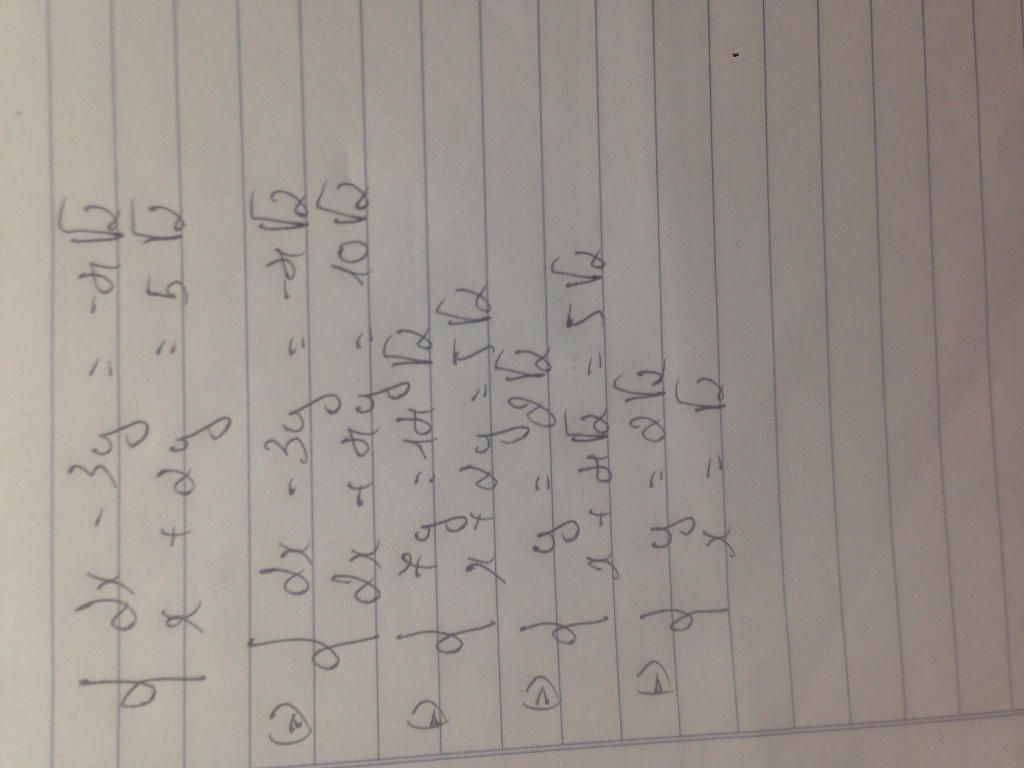 { 2x - 3y = -4√2
x + 2y = 5√2
(=) { 2x - 3y = -4√2
2x + 4y = 10√2
(=) { 7y = 14√2
x + 2y = 5√2
(=) { y = 2√2
x + 4√2 = 5√2
(=) { y = 2√2
x = √2